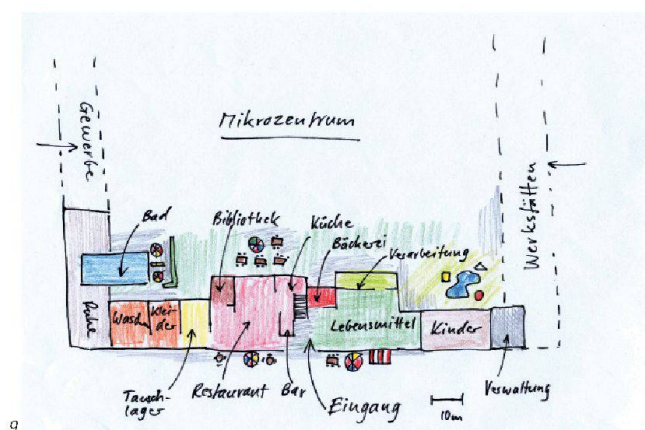 Mikrozentrum
Gewerbe
Werkstätten
Bad
Bibliothek
Küche
Bäckerei
Verarbeitung
Ruhe
Wasch
Klei-
der
Lebensmittel
Kinder
Tausch-
lager
Restaurant
Bar
Eingang
10m
Verwaltung
g